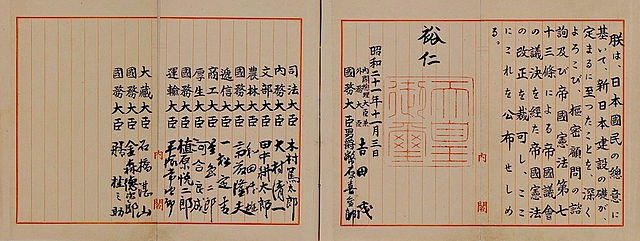 朕は、日本國民の總意に
基いて、新日本建設の礎が、
定まるに至つたことを、深く
よろこび、樞密顧問の諮
詢及び帝國憲法第七
十三條による帝國議會
の議決を経た帝國憲法
の改正を裁可し、ここ
にこれを公布せしめ
る。
内閣
裕仁
天皇
御璽
昭和二十一年十一月三日
内閣總理大臣兼
外務大臣 吉田茂
國務大臣 男爵 幣原喜重郎
司法大臣 木村篤太郎
内務大臣 大村清一
文部大臣 田中耕太郎
農林大臣 和田博雄
國務大臣 斎藤隆夫
遞信大臣 一松定吉
商工大臣 星島二郎
厚生大臣 河合良成
國務大臣 植原悦二郎
運輸大臣 平塚常次郎
内閣
大藏大臣 石橋湛山
國務大臣 金森徳次郎
國務大臣 膳桂之助